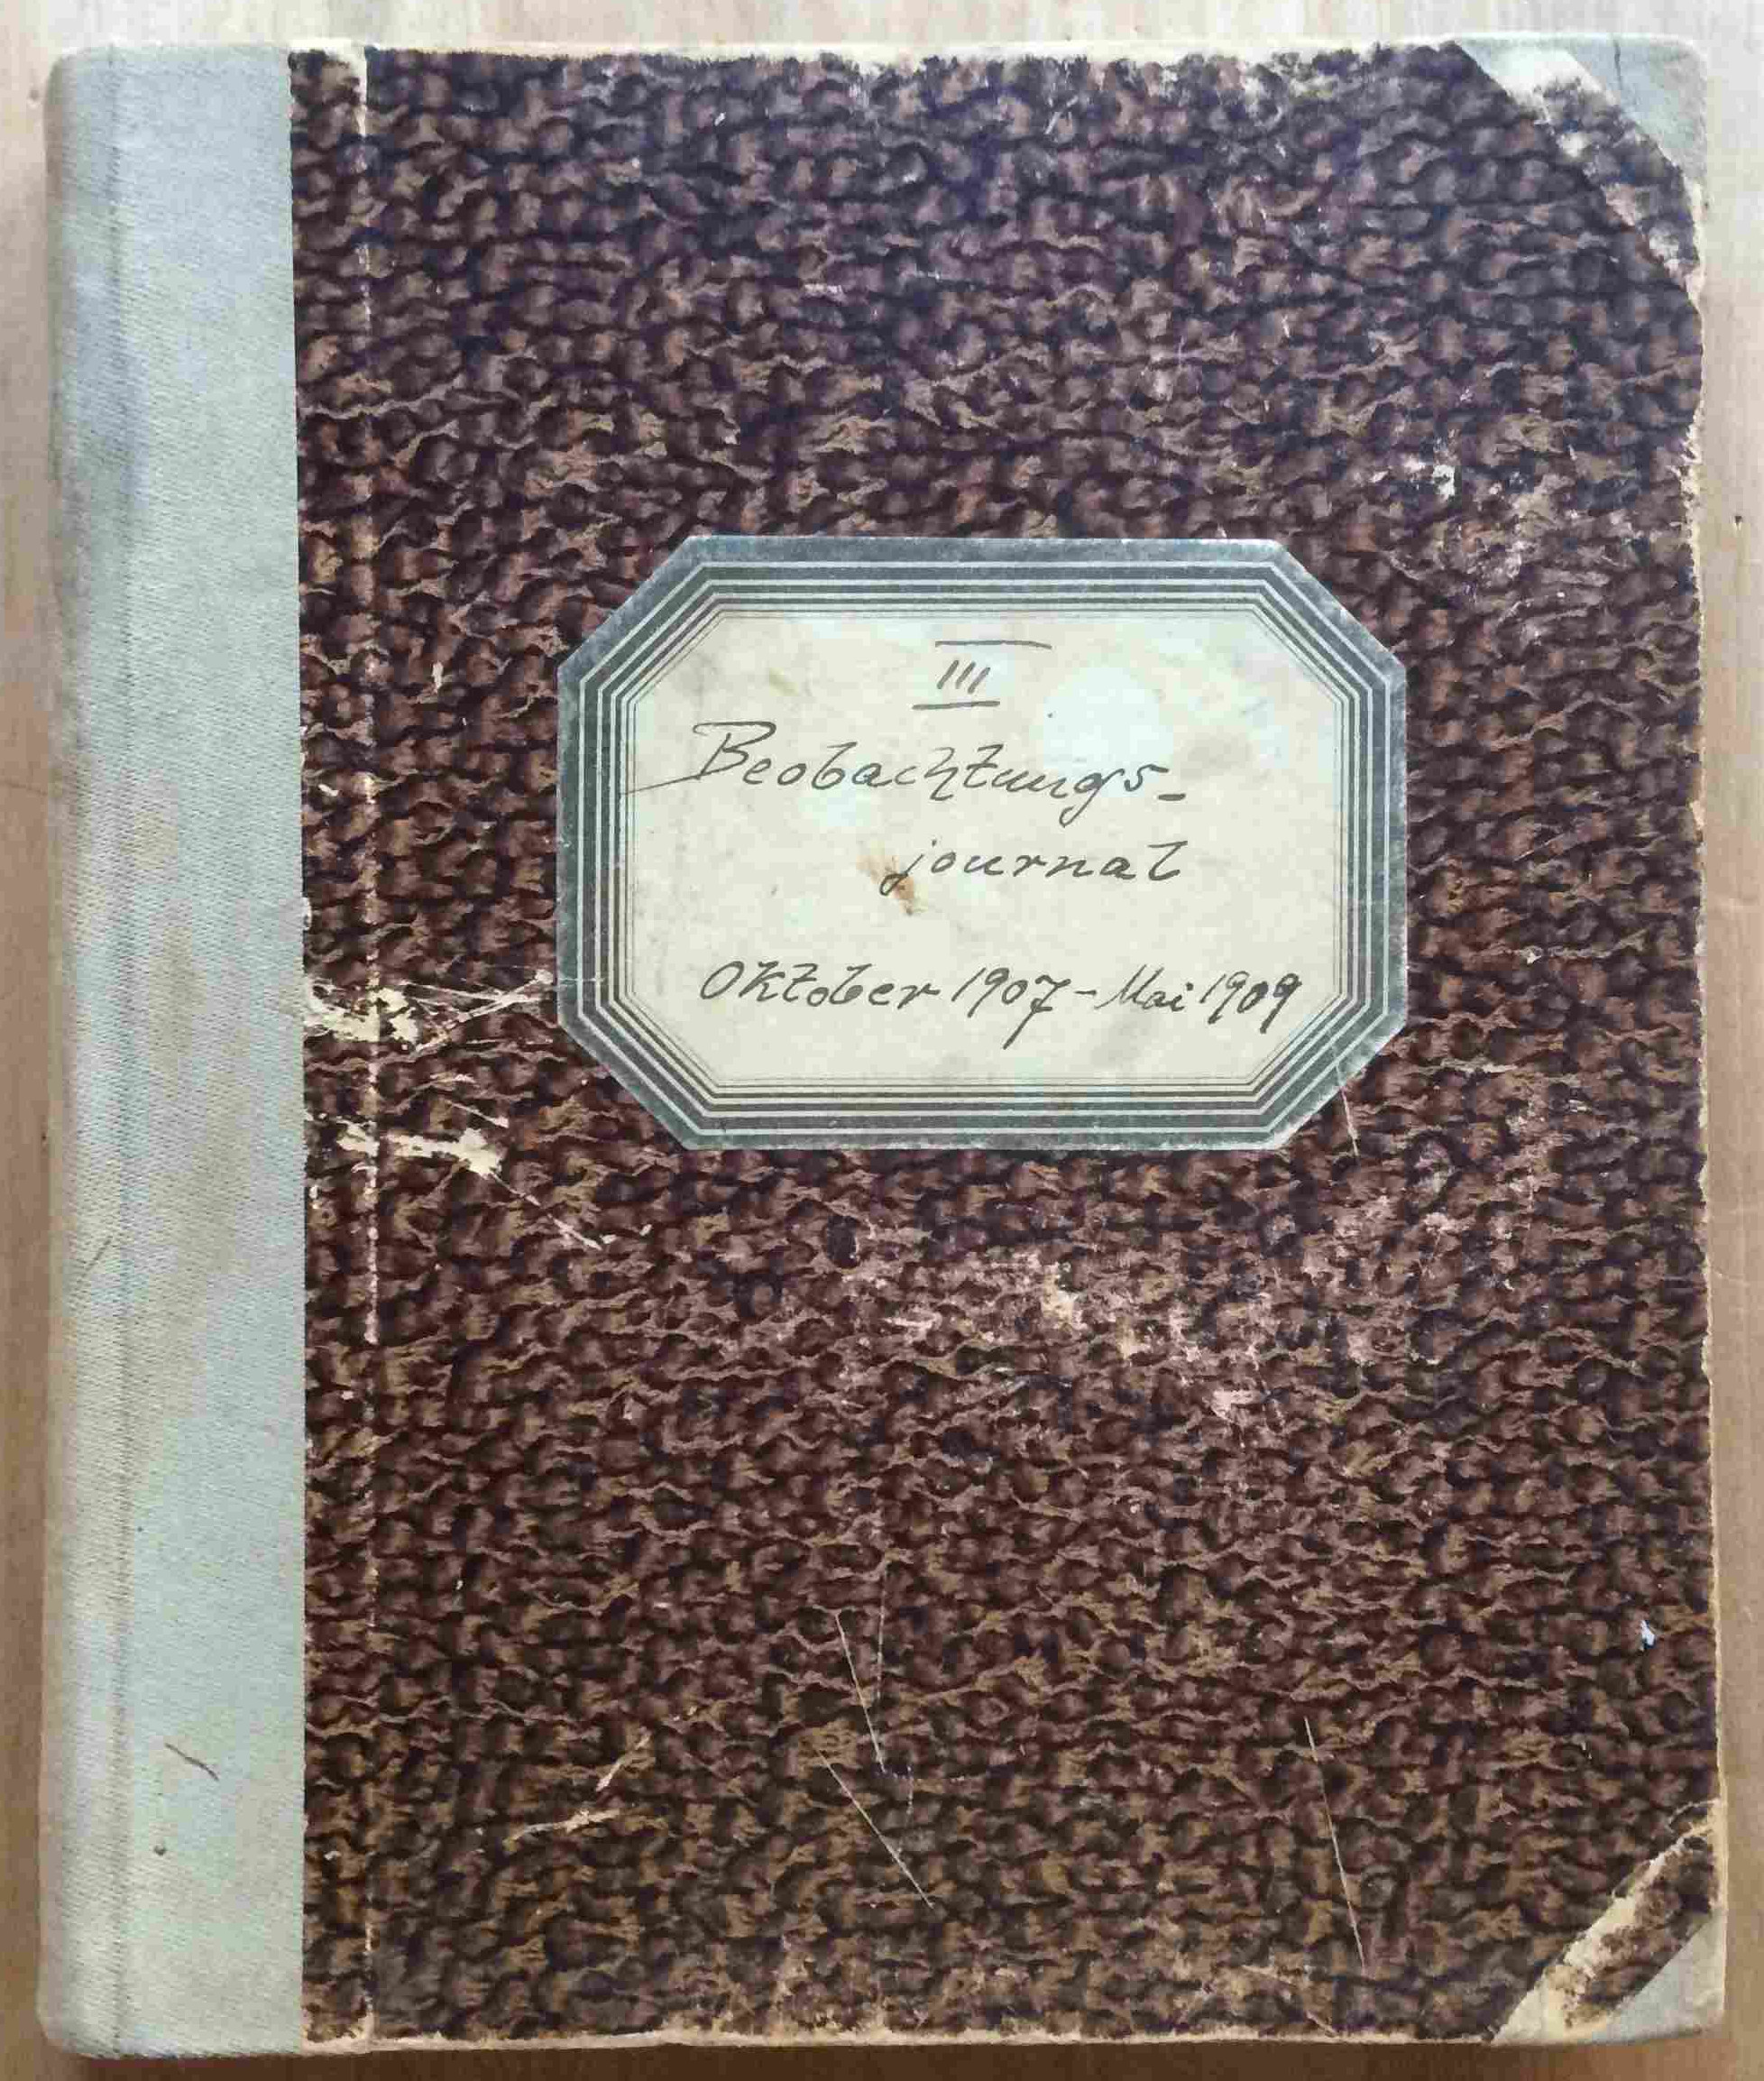 III
Beobachtungs-
journal
Oktober 1907 - Mai 1909